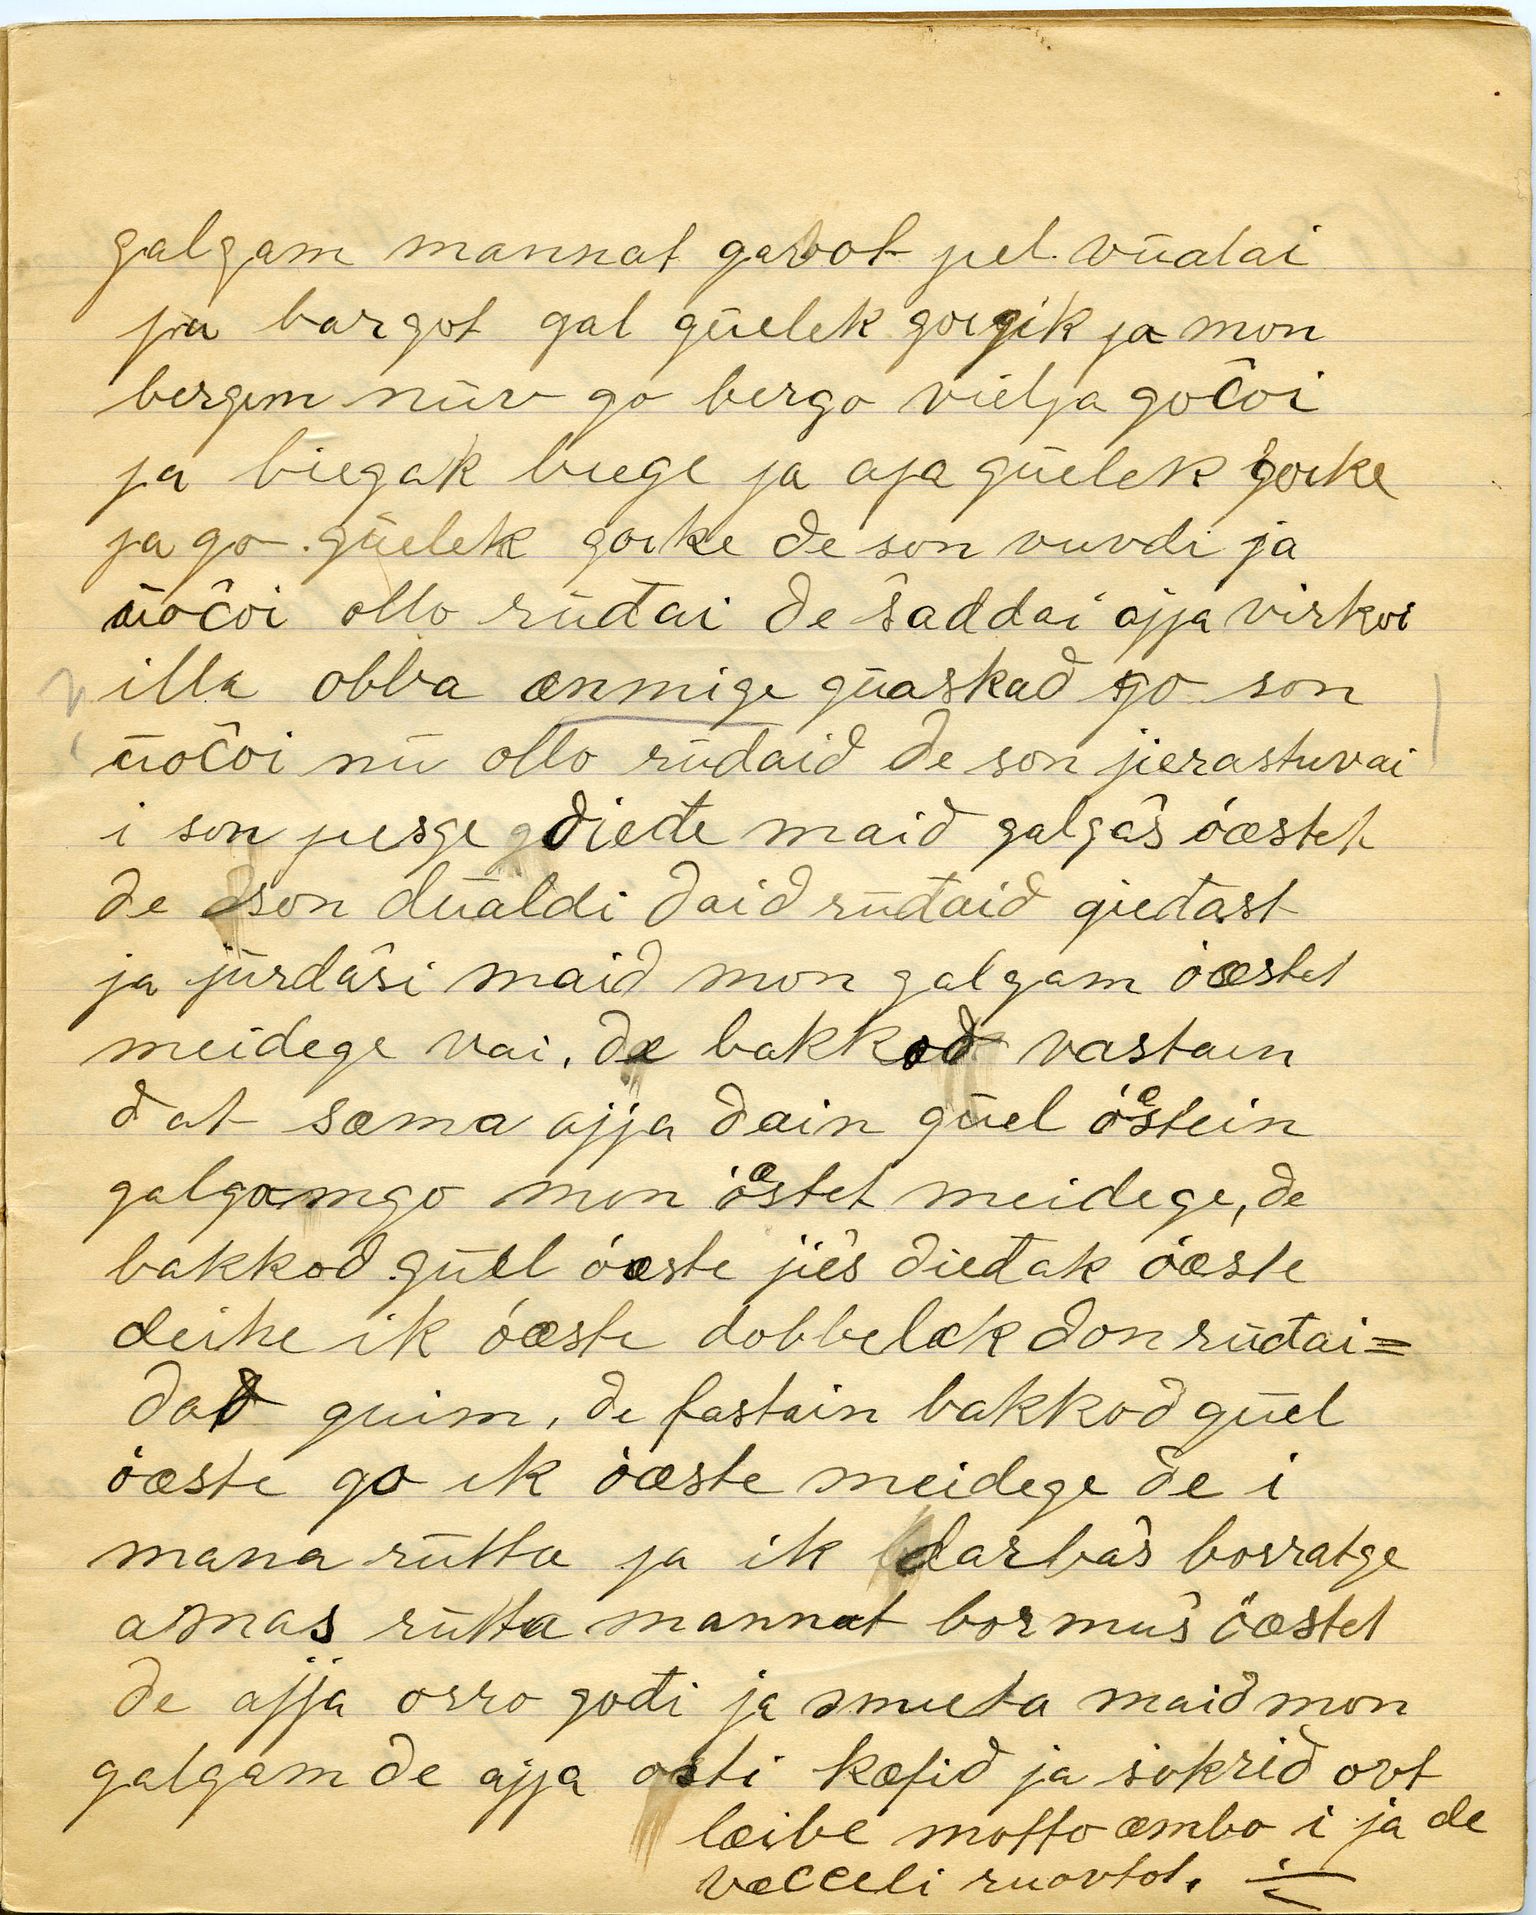 galgam mannat garvot jel. vūalai
ja bargot gal gūelek goigik ja mon
bergim nūv go bergo vielja gočoi
ja biegak biege ja aja gūelek goike
ja go gūelek goike de son vuvdi ja
ūočoi ollo rūđai de šaddai ajja virkoi
illa obba ænmige gūaskad go son
ūočoi nū ollo rūdaid de son jierastuvai
i son jiesge dieđe maid galgaš oæstet
de son dūaldi daid rūđaid gieđast
ja jūrdaši maid mon galgam oæstet
meidege vai. de bakkod vastain
dat sæma ajja dain gūel oæstein
galgamgo mon oæstet meidege, de
bakkod gūel oæste jieš dieđak oæste
deihe ik oæste dobbelæk don rūđai=
dad guim, de fastain bakkod gūel
oæste go ik oæste meidege de i
mana rūtta ja ik darbaš borratge
amas rūtta mannat bormuš oæstet
de ajja orro gođi ja smieta maid mon
galgam de ajja osti kæfid ja sokrid ovt
læibe motto æmbo i ja de
væcceli ruovtot.